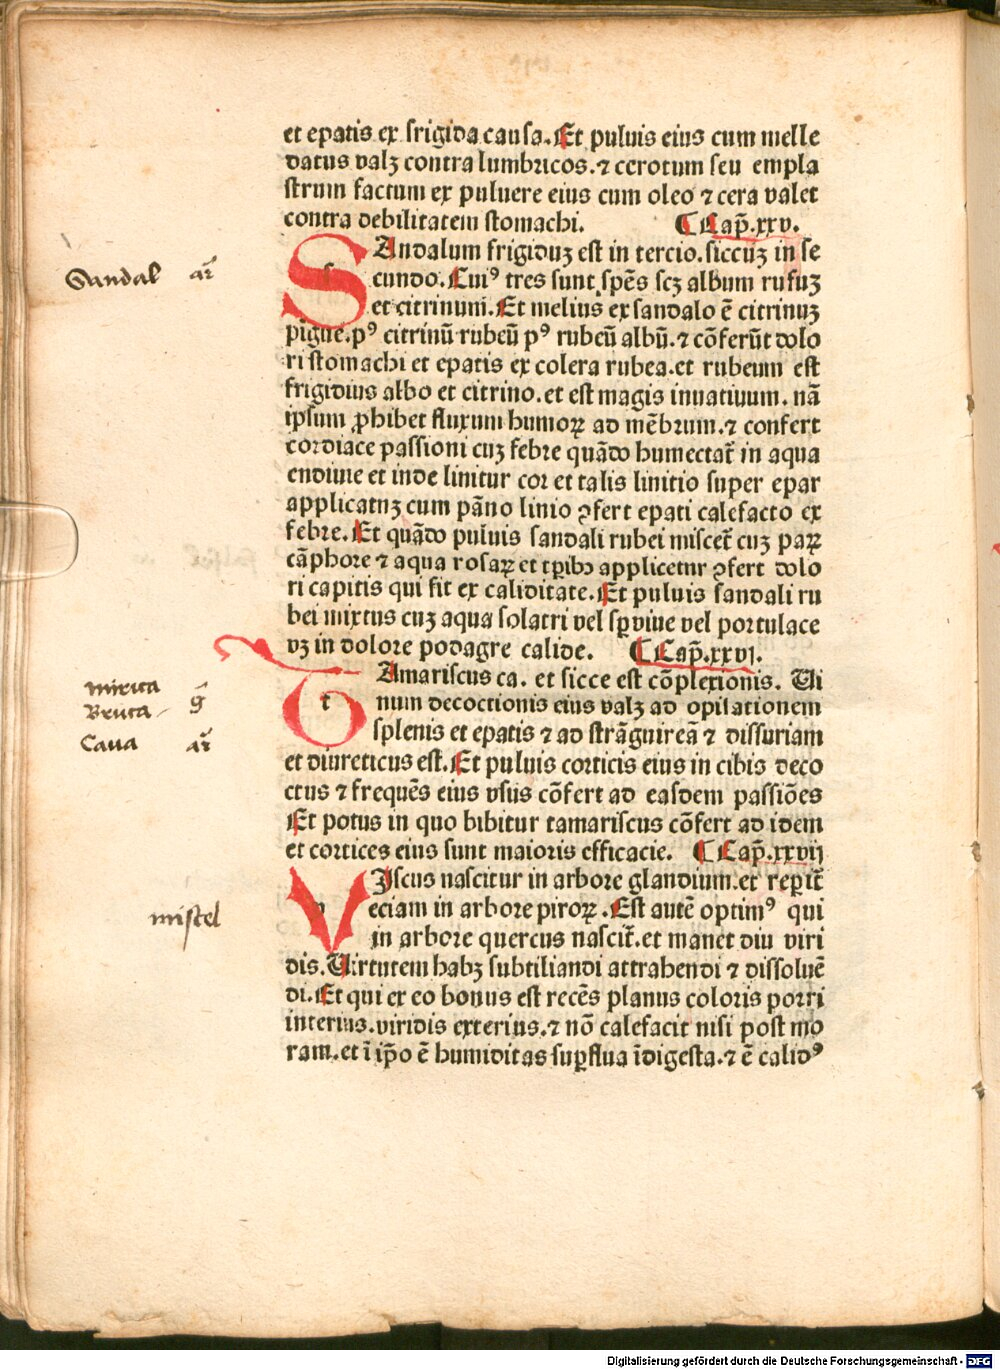 et epatis ex frigida causa. Et puluis eius cum melle
datus valꝫ contra lumbricos. ⁊ cerotum seu empla
strum factum ex puluere eius cum oleo ⁊ cera valet
contra debilitatem stomachi. ¶ Cap̄. xxv.
SAndalum frigiduꝫ est in tercio. siccuꝫ in se
cundo. Cuiꝰ tres sunt spēs scꝫ album rufuꝫ
et citrinum. Et melius ex sandalo ē citrinuꝫ
pigue. pꝰ citrinū rubeū pꝰ rubeū albū. ⁊ cōferūt dolo
ri stomachi et epatis ex colera rubea. et rubeum est
frigidius albo et citrino. et est magis iuuatiuum. nā
ipsum ꝓhibet fluxum humoꝝ ad mēbrum. ⁊ confert
cordiace passioni cuꝫ febre quādo humectat̄ in aqua
endiuie et inde linitur cor et talis linitio super epar
applicatuꝫ cum pāno linio ꝯfert epati calefacto ex
febre. Et quādo puluis sandali rubei miscet̄ cuꝫ paꝝ
cāphore ⁊ aqua rosaꝝ et tꝑibꝫ applicetur ꝯfert dolo
ri capitis qui fit ex caliditate. Et puluis sandali ru
bei mixtus cuꝫ aqua solatri vel sꝑuiue vel portulace
vꝫ in dolore podagre calide. ¶ Cap̄. xxvj.
TAmariscus ca. et sicce est cōplexionis. Ui
num decoctionis eius valꝫ ad opilationem
splenis et epatis ⁊ ad strāguireā ⁊ dissuriam
et diureticus est. Et puluis corticis eius in cibis deco
ctus ⁊ frequēs eius vsus cōfert ad easdem passiōes
Et potus in quo bibitur tamariscus cōfert ad idem
et cortices eius sunt maioris efficacie. ¶ Cap̄. xxvij
VIscus nascitur in arbore glandium. et reꝑit̄
eciam in arbore piroꝝ. Est autē optimꝰ qui
in arbore quercus nascit̄. et manet diu viri
dis. Uirtutem habꝫ subtiliandi attrahendi ⁊ dissoluē
di. Et qui ex eo bonus est recēs planus coloris porri
interius. viridis exterius. ⁊ nō calefacit nisi post mo
ram. et ī ip̄o ē humiditas suꝑflua īdigesta. ⁊ ē calidꝰ
Sandal ar̄
mirica
Bruca g̅
Caua ar̄
mistel
Digitalisierung gefördert durch die Deutsche Forschungsgemeinschaft - DFG